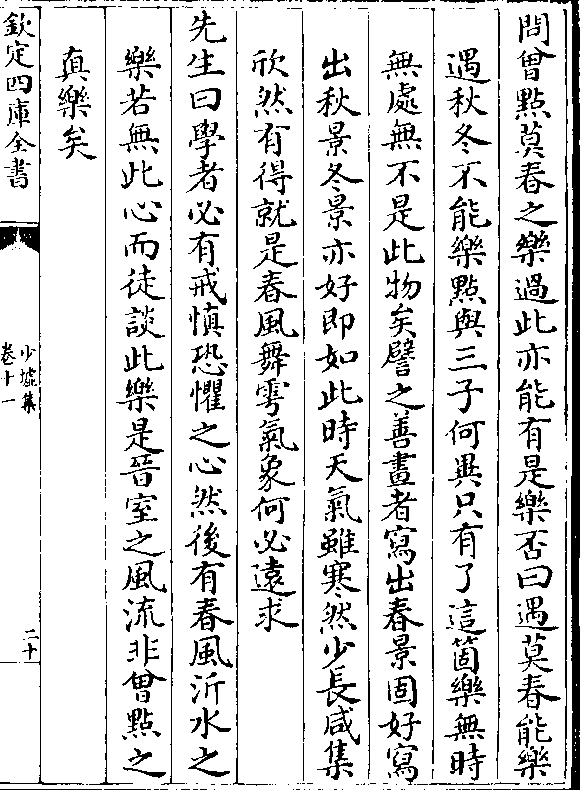 問曾點莫春之樂過此亦能有是樂否曰遇莫春能樂
遇秋冬不能樂點與三子何異只有了這箇樂無時
無處無不是此物矣譬之善畫者寫出春景固好寫
出秋景冬景亦好即如此時天氣雖寒然少長咸集
欣然有得就是春風舞雩氣象何必遠求
先生曰學者必有戒慎恐懼之心然後有春風沂水之
樂若無此心而徒談此樂是晉室之風流非曾點之
真樂矣
欽定四庫全書
少墟集
卷十一
二十